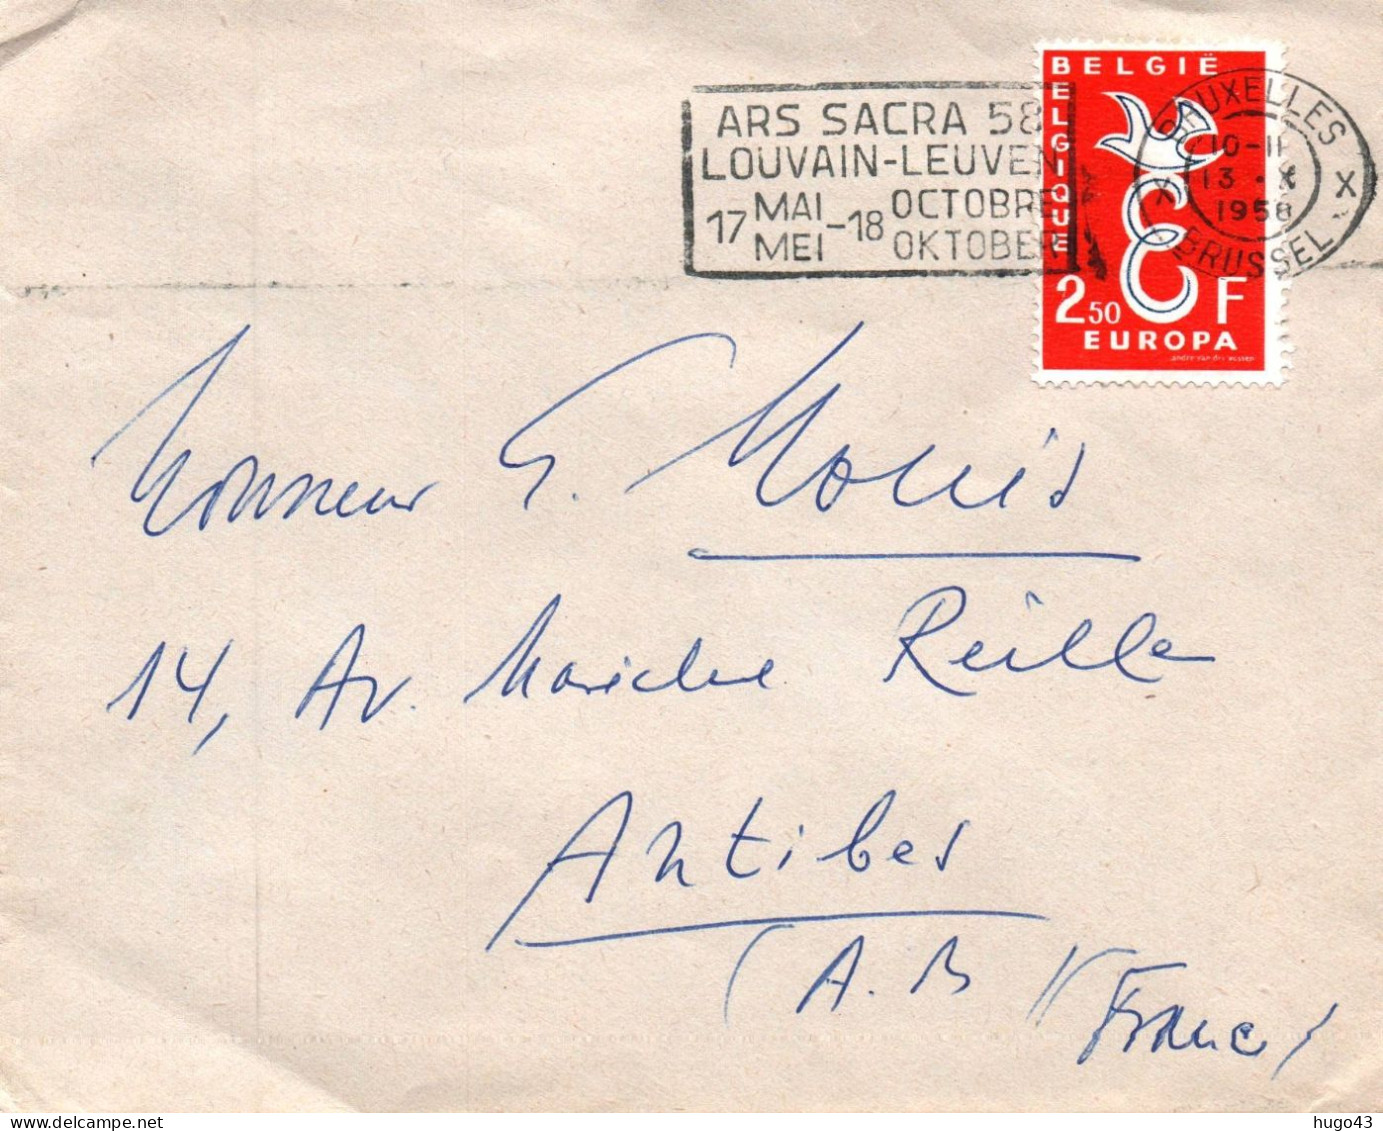 ARS SACRA 58
LOUVAIN-LEUVEN
17 MAI - 18 OCTOBRE
MEI OKTOBER
BELGIË
BELGIQUE
2.50 F
EUROPA
BRUXELLES
10-11
13 · X
1958
X X
BRUSSEL
Monsieur G.
14, Av. Maréchal Reille
Antibes
(A. M) (France)
hugo43